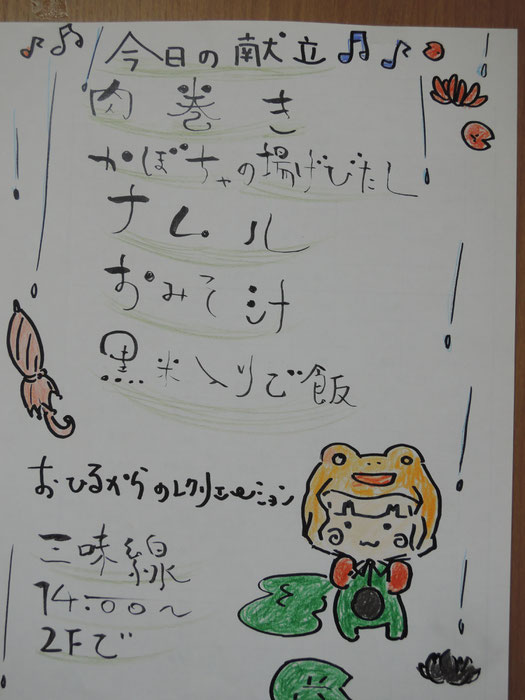 今日の献立
肉巻き
かぼちゃの揚げびたし
ナムル
おみそ汁
黒米入りご飯
おひるからのレクリエーション
三味線
14:00~
2Fで